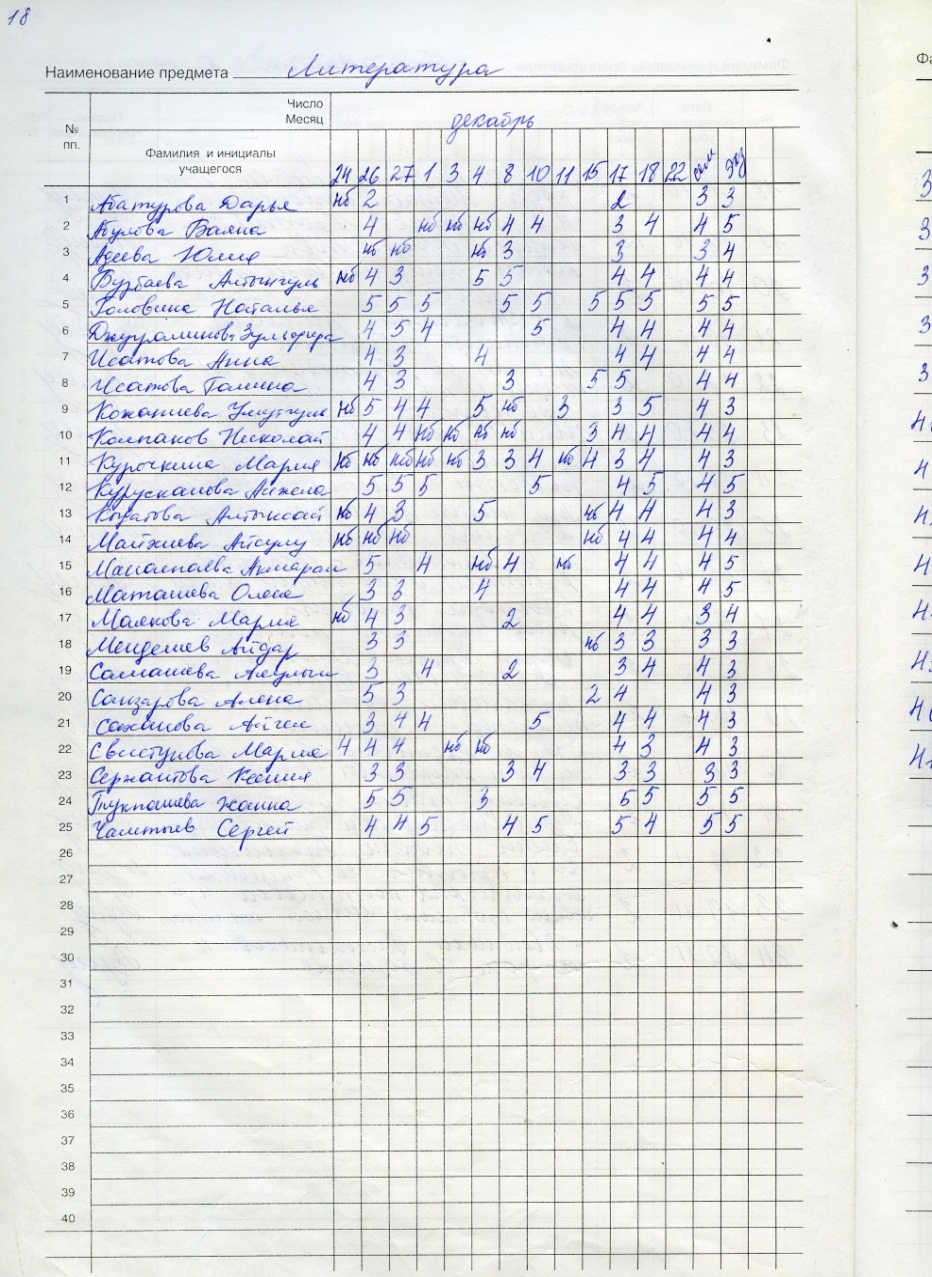 18
Наименование предмета Литература
Число
Месяц
декабрь
№ пп.
Фамилия и инициалы учащегося
24 26 27 1 3 4 8 10 11 15 17 18 22 сем экз
1 Абатурова Дарья нб 2 2 3 3
2 Акулова Баяна 4 нб нб нб 4 4 3 4 4 5
3 Адеева Юлия нб нб нб 3 3 3 4
4 Бузбаева Алтынгуль нб 4 3 5 5 4 4 4 4
5 Головина Наталья 5 5 5 5 5 5 5 5 5 5
6 4 5 4 5 4 4 4 4
7 Исатова Анна 4 3 4 4 4 4 4
8 Исатова Галина 4 3 3 5 5 4 4
9 Кожашева нб 5 4 4 5 нб 3 3 5 4 3
10 Колпаков Николай 4 4 нб нб нб нб 3 4 4 4 4
11 Курочкина Мария нб нб нб нб нб 3 3 4 нб 4 3 4 4 3
12 Курусканова Анжела 5 5 5 5 4 5 4 5
13 Кыпатова Алтынсай нб 4 3 5 нб 4 4 4 3
14 Майжиева Айсулу нб нб нб нб 4 4 4 4
15 5 4 нб 4 нб 4 4 4 5
16 Маташева Олеся 3 3 4 4 4 4 5
17 Маякова Мария нб 4 3 2 4 4 3 4
18 Мендешев Айдар 3 3 нб 3 3 3 3
19 Самашева 3 4 2 3 4 4 3
20 Санзарова Алена 5 3 2 4 4 3
21 Сахалова Айген 3 4 4 5 4 4 4 3
22 Свистунова Мария 4 4 4 нб нб 4 3 4 3
23 Сержантова Ксения 3 3 3 4 3 3 3 3
24 Тукпашева Жанна 5 5 3 5 5 5 5
25 Чалтыев Сергей 4 4 5 4 5 5 4 5 5
26
27
28
29
30
31
32
33
34
35
36
37
38
39
40